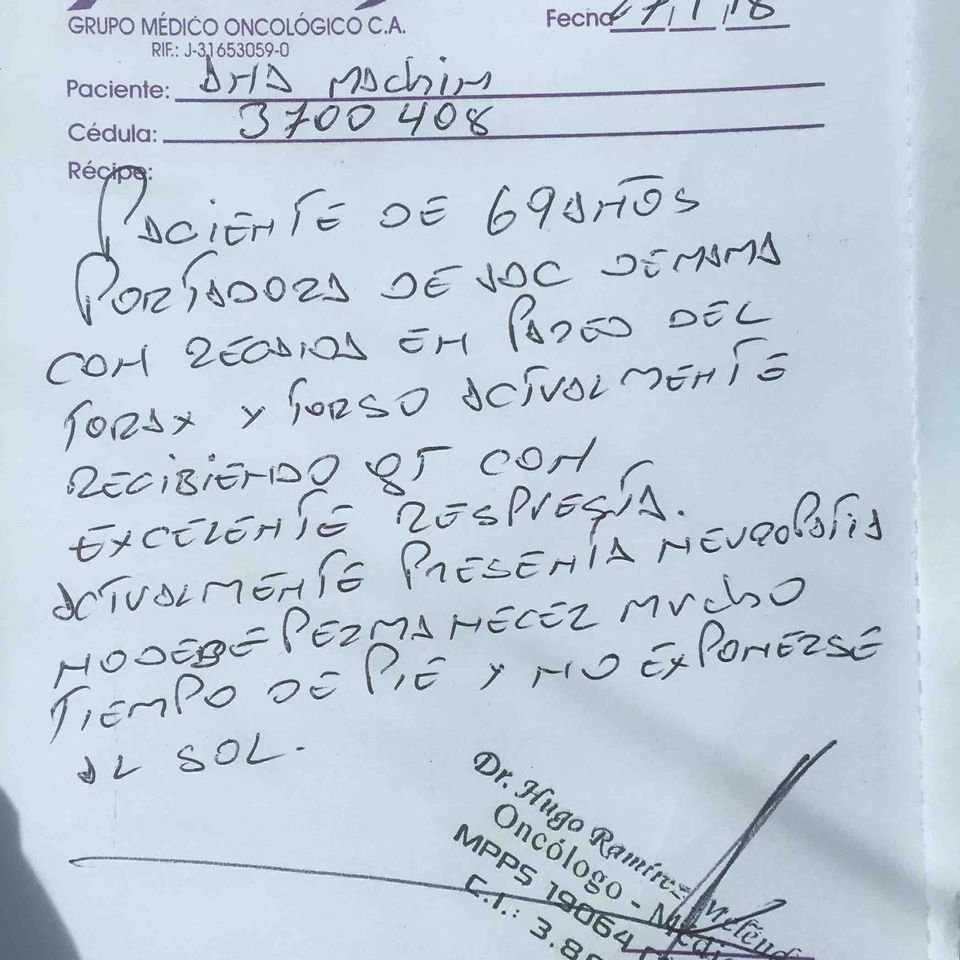 GRUPO MÉDICO ONCOLÓGICO C.A.
RIF.: J-31653059-0
Fecha 27/1/18
Paciente: ANA MAchiN
Cédula: 3700 408
Récipe:
PACIENTE DE 69 AÑOS
PORTADORA DE ADC DE MAMA
CON RECAIDA EN PARED DEL
TORAX Y TORSO ACTUALMENTE
RECIBIENDO QT CON
EXCELENTE RESPUESTA.
ACTUALMENTE PRESENTA NEUROPATIA
NO DEBE PERMANECER MUCHO
TIEMPO DE PIE Y NO EXPONERSE
AL SOL.
Dr. Hugo Ramírez Meléndez
Oncólogo -
MPPS 19064
C.I.: 3.8